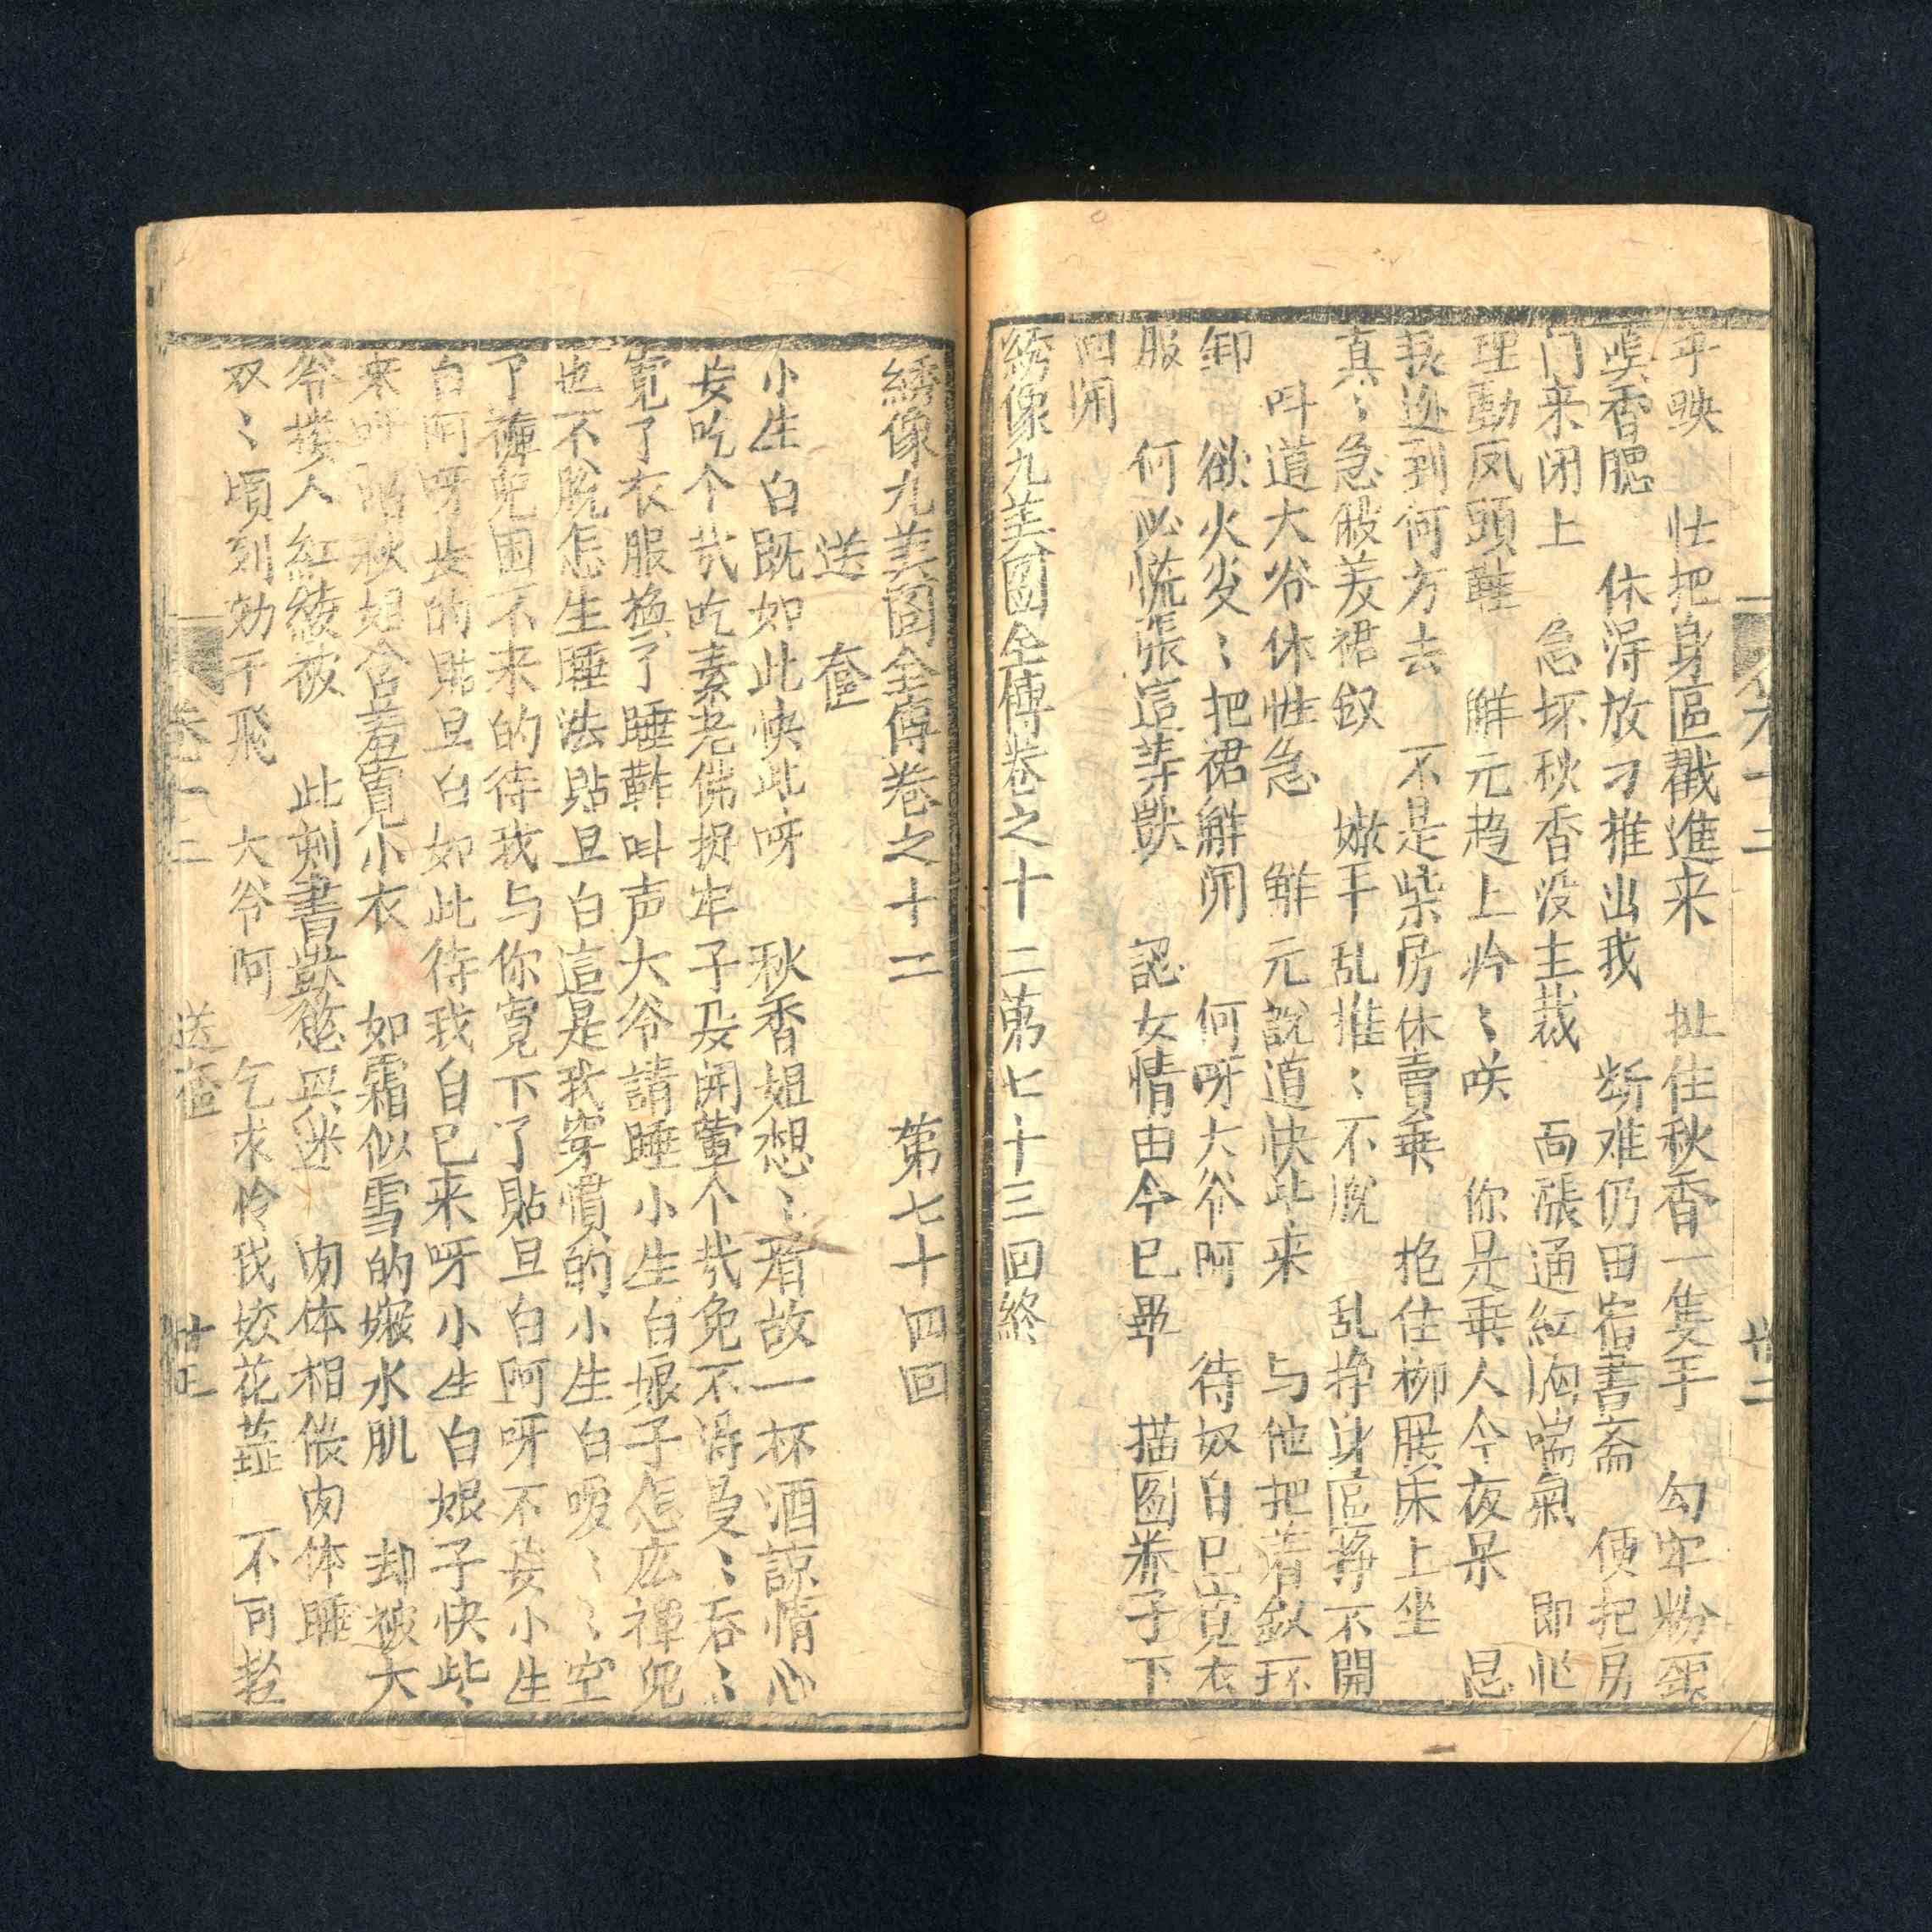 乎映 忙把身區戳進来 扯住秋香一隻手 勾牢粉
香腮 休淂放刁推出我 断难仍田宿書斋 便把房
门来闭上 急坏秋香没主裁 面漲通紅胸喘氣 即忙
理動凤頭鞋 觧元趋上吟〻咲 你是乗人今夜呆
到何方去 不是柴房休賣乗 抱住柳腰床上坐
真〻急殺羙裙釵 嫩手乱推〻不脫 乱挣身區挣不開
呌道大爷休性急 觧元說道快些来 与他把着釵环
卸 欲火炎〻把裙觧闲 何呀大爷阿 待奴自巳寬衣
服 何必慌張這等獃 認女情由今巳畢 描图券子下
回闲
綉像九美图全傳卷之十二第七十三回終
卷十二
廿二
綉像九美图全傳卷之十二 第七十四回
送 奩
小生白既如此快些呀 秋香姐想〻看故一杯酒諒情心
安吃个哉吃素老佛捉牢子及開葷个哉免不淂受〻吞〻
寬了衣服換了睡鞋呌声大爷請睡小生白娘子怎広褌児
也不脫怎生睡法貼旦白這是我穿慣的小生白嗳〻〻空
了褲児困不来的待我与你寬下了貼旦白阿呀不妥小生
白阿呀妥的貼旦白如此待我自巳来呀小生白娘子快些〻
来呀 秋姐含羞寬小衣 如霜似雪的嫩水肌 却被大
爷摟入紅綾被 此刻書獃慾興迷 肉体相偎肉体睡
双〻頃刻効于飛 大爷阿 乞求怜我姣花蕋 不可
卷十二
送奩